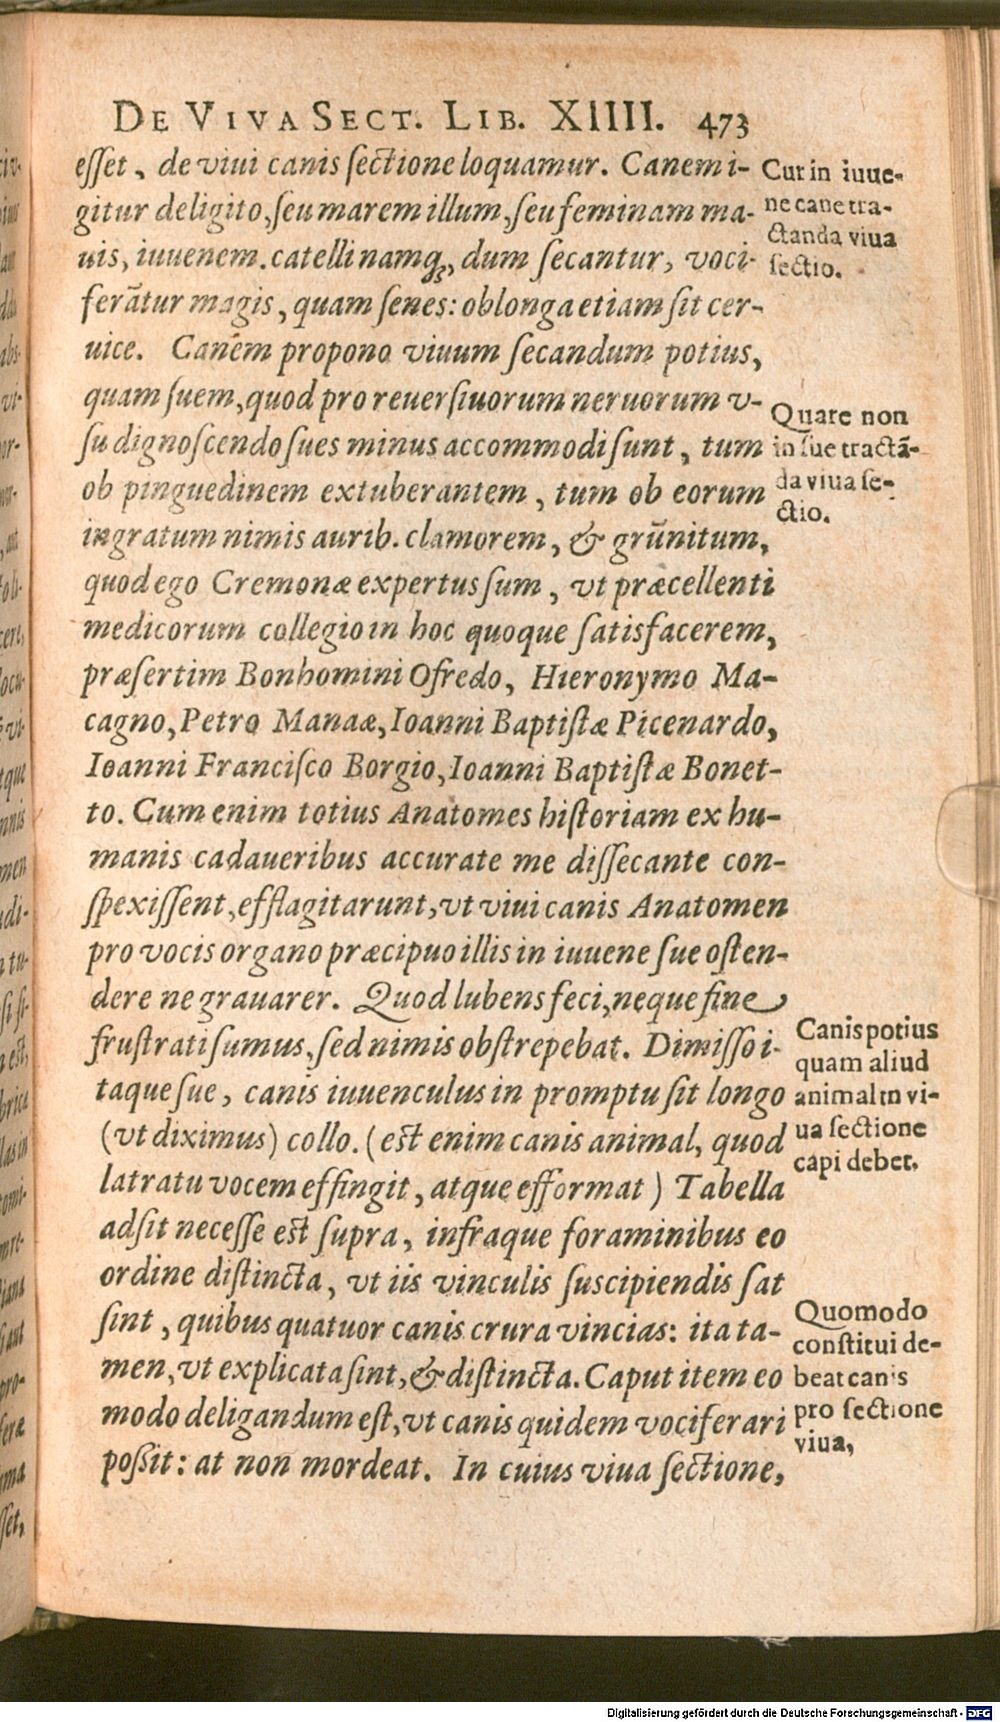 DE VIVA SECT. LIB. XIIII. 473
esset, de viui canis sectione loquamur. Canem i-
gitur deligito, seu marem illum, seu feminam ma-
uis, iuuenem. catelli namq;, dum secantur, voci-
ferãtur magis, quam senes: oblonga etiam sit cer-
uice. Canem propono viuum secandum potius,
quam suem, quod pro reuersiuorum neruorum v-
su dignoscendo sues minus accommodi sunt, tum
ob pinguedinem extuberantem, tum ob eorum
ingratum nimis aurib. clamorem, & grũnitum,
quod ego Cremonæ expertus sum, vt præcellenti
medicorum collegio in hoc quoque satisfacerem,
præsertim Bonhomini Ofredo, Hieronymo Ma-
cagno, Petro Manaæ, Ioanni Baptistæ Picenardo,
Ioanni Francisco Borgio, Ioanni Baptistæ Bonet-
to. Cum enim totius Anatomes historiam ex hu-
manis cadaueribus accurate me dissecante con-
spexissent, efflagitarunt, vt viui canis Anatomen
pro vocis organo præcipuo illis in iuuene sue osten-
dere ne grauarer. Quod lubens feci, neque fine
frustrati sumus, sed nimis obstrepebat. Dimisso i-
taque sue, canis iuuenculus in promptu sit longo
(vt diximus) collo. (est enim canis animal, quod
latratu vocem effingit, atque efformat) Tabella
adsit necesse est supra, infraque foraminibus eo
ordine distincta, vt iis vinculis suscipiendis sat
sint, quibus quatuor canis crura vincias: ita ta-
men, vt explicata sint, & distincta. Caput item eo
modo deligandum est, vt canis quidem vociferari
possit: at non mordeat. In cuius viua sectione,
Cur in iuue-
ne cane tra-
ctanda viua
sectio.
Quare non
in sue tractã-
da viua se-
ctio.
Canis potius
quam aliud
animal in vi-
ua sectione
capi debet.
Quomodo
constitui de-
beat canis
pro sectione
viua,
Digitalisierung gefördert durch die Deutsche Forschungsgemeinschaft - DFG